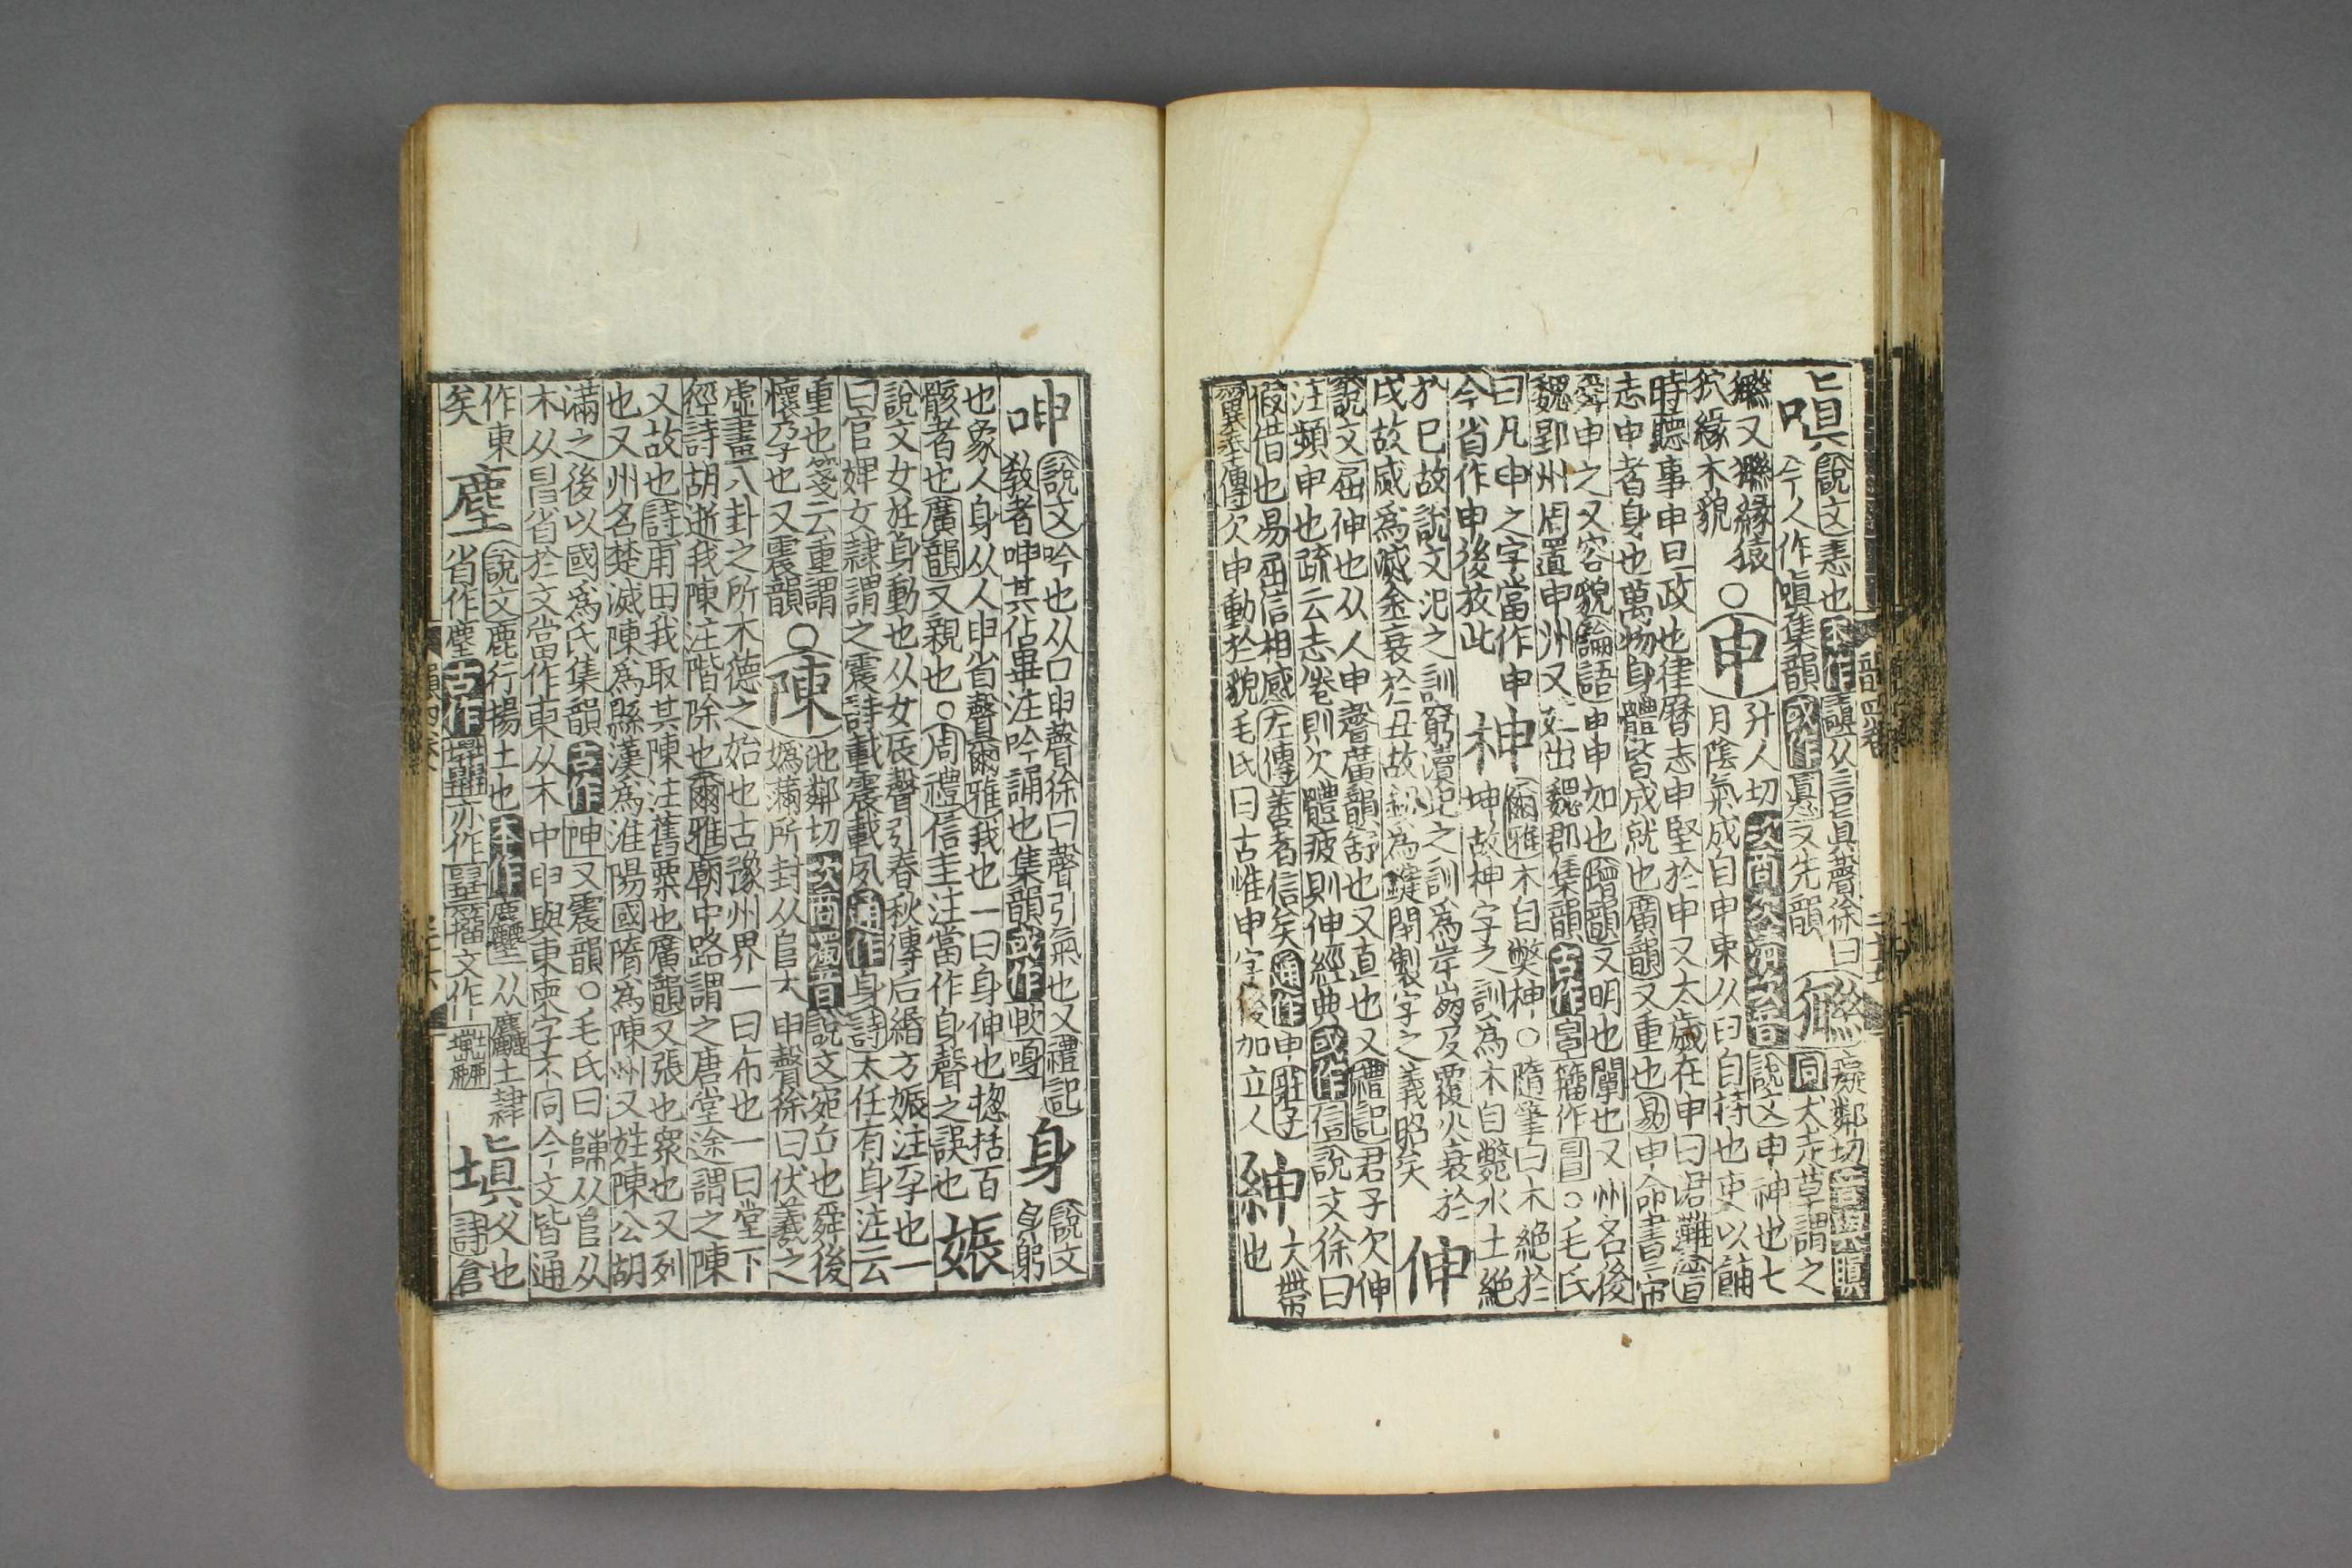 嗔
說文恚也本作謓从言眞聲徐曰
今人作嗔集韻或作 又先韻
同犬走草謂之
狋緣木貌
○申
升人切次商次清次音說文申神也七
月陰氣成自申束从臼自持也吏以餔
時聽事申旦政也律曆志申堅於申又太歲在申曰涒灘
志申者身也萬物身體皆成就也廣韻又重也易申命書
舜申之又容貌論語申申如也增韻又明也闡也又州名後
魏郢州周置申州又 出魏郡集韻古作 籒作 ○毛氏
曰凡申之字當作申
今省作申後放此
神
爾雅木自獘神○隨筆曰木絕於
坤故神字之訓為木自斃水土絕
於巳故說文汜之訓窮瀆圯之訓為岸崩及覆火衰於
戌故烕為滅金衰於丑故 為鍵閉製字之義昭矣
伸
說文屈伸也从人申聲廣韻舒也又直也又禮記君子欠伸
注頻申也疏云志倦則欠體疲則伸經典或作信說文徐曰
假借也易屈信相感左傳善者信矣通作申莊子
欠申動於貌毛氏曰古惟申字後加立人
紳
大帶
也
呻
說文吟也从口申聲徐曰聲引氣也又禮記
教者呻其佔畢注吟誦也集韻或作
身
說文
身躬
也象人身从人申省聲爾雅我也一曰身伸也揔括百
骸者也廣韻又親也○周禮信圭注當作身聲之誤也
娠
說文女妊身動也从女辰聲引春秋傳后緡方娠注孕也一
曰官婢女隷謂之娠詩載震載夙通作身詩太任有身注云
重也箋云重謂
懷孕也又震韻
○陳
池鄰切次商濁音說文宛丘也舜後
媯滿所封从𨸏木申聲徐曰伏羲之
虛畫八卦之所木德之始也古豫州界一曰布也一曰堂下
徑詩胡逝我陳注階除也爾雅廟中路謂之唐堂途謂之陳
又故也詩甫田我取其陳注舊粟也廣韻又張也眾也又列
也又州名楚滅陳為縣漢為淮陽國隋為陳州又姓陳公胡
滿之後以國為氏集韻古作 又震韻○毛氏曰 从𨸏从
木从 省於文當作東从木中申與東㯥字不同今文皆通
作東
矣
塵
說文鹿行揚土也本作 从 土隷
省作塵古作 亦作 籒文作
塡
久也
詩倉